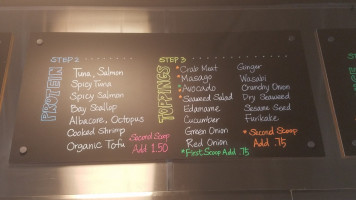 STEP 2
PROTEIN
Tuna, Salmon
Spicy Tuna
Spicy Salmon
Bay Scallop
Albacore, Octopus
Cooked Shrimp
Organic Tofu
Second Scoop
Add 1.50
STEP 3
TOPPINGS
* Crab Meat
* Masago
* Avocado
* Seaweed Salad
Edamame
Cucumber
Green Onion
Red Onion
* First Scoop Add .75
Ginger
Wasabi
Crunchy Onion
Dry Seaweed
Sesame Seed
Furikake
* Second Scoop
Add .75